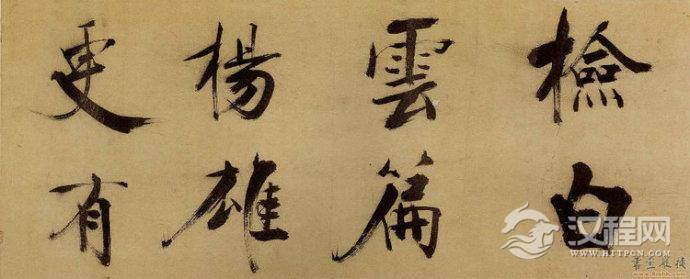 檢白
雲篇
楊雄
更有
汉程网
WWW.HTTPCN.COM